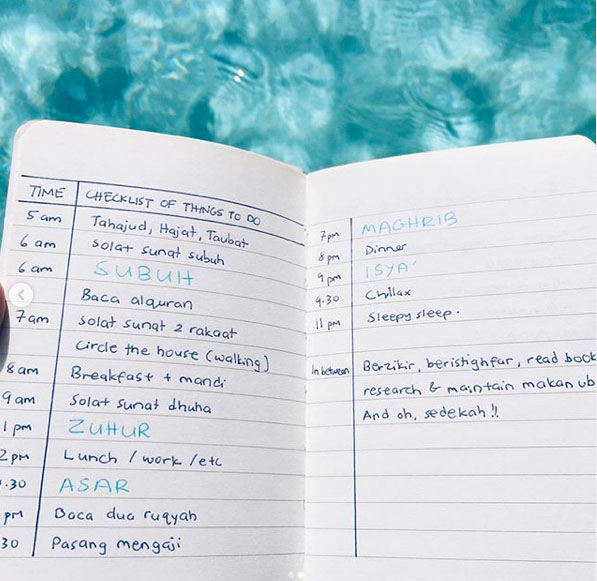 TIME CHECKLIST OF THINGS TO DO
5 am Tahajud, Hajat, Taubat
6 am Solat sunat subuh
6 am SUBUH
Baca alquran
7 am Solat sunat 2 rakaat
Circle the house (walking)
8 am Breakfast + mandi
9 am Solat sunat dhuha
1 pm ZUHUR
2 pm Lunch / work / etc
.30 ASAR
pm Baca dua ruqyah
30 Pasang mengaji
7 pm MAGHRIB
8 pm Dinner
9 pm ISYA'
9.30 Chillax
11 pm Sleepy sleep.
In between Berzikir, beristighfar, read book
research & maintain makan ub
And oh, sedekah!!